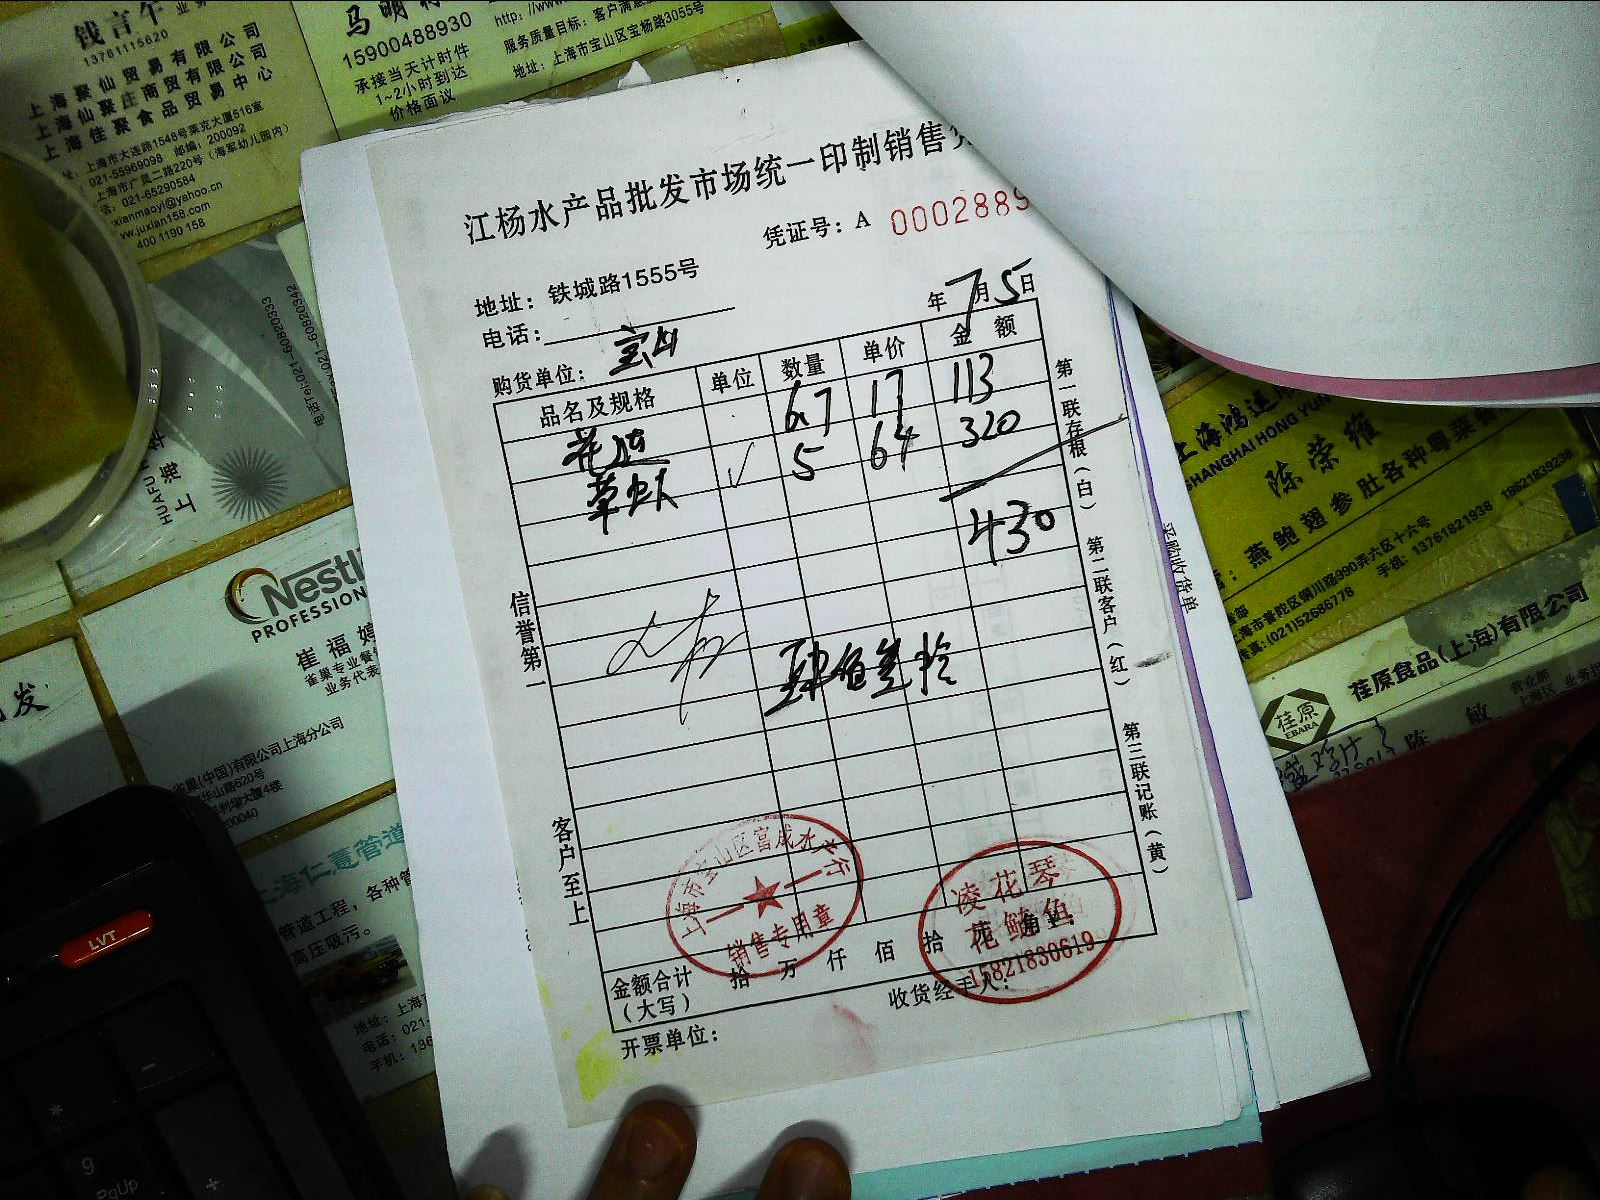 钱言午 业务
13761115620
上海聚仙贸易有限公司
上海仙聚庄商贸有限公司
上海佳聚食品贸易中心
上海市大连路1548号莱克大厦516室
021-55969098 邮编：200092
上海市广灵二路220号（海军幼儿园内）
话：021-65290584
xianmaoyi@yahoo.cn
www.juxian158.com
400 1190 158
马明
15900488930
承接当天计时件
1~2小时到达
价格面议
http://
服务质量目标：客户满意
地址：上海市宝山区宝杨路3055号
江杨水产品批发市场统一印制销售
凭证号：A 0002889
地址：铁城路1555号
电话：
年 7 月 5 日
购货单位：宝山
品名及规格 单位 数量 单价 金额
花鲢 6.7 17 113
草虾 5 64 320
430
肆佰叁拾
信誉第一
客户至上
第一联存根（白）
第二联客户（红）
第三联记账（黄）
上海市宝山区富成水产行
销售专用章
凌花琴
花鲢鱼
15821830619
金额合计（大写） 拾 万 仟 佰 拾 元 角
收货经手人：
开票单位：
采购收货单
HUAFU
上海
电话Tel:021-60820333
021-60820342
Nestl
PROFESSION
崔福婷
雀巢专业餐
业务代表
雀巢(中国)有限公司上海分公司
华山路620号
利华大厦4楼
200040
上海仁薏管道
管道工程，各种管
高压吸污。
地址：上海
电话：021-
手机：136
上海鸿运
SHANGHAI HONG YUN
陈荣雍
燕鲍翅参肚各种粤菜
上海市普陀区铜川路990弄六区十六号
传真：(021)52686778 手机：13761821938 18621839238
荏原
EBARA
荏原食品(上海)有限公司
营业部
上海区 业务担
陈 敏
LVT
9
PgUp
*
-
+